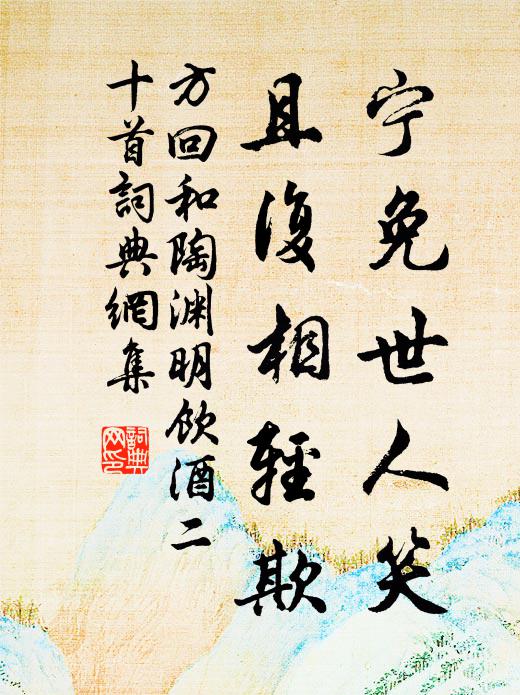 宁免世人笑
且復相輕欺
方回和陶渊明饮酒二
十首詞典網集
詞典
网印